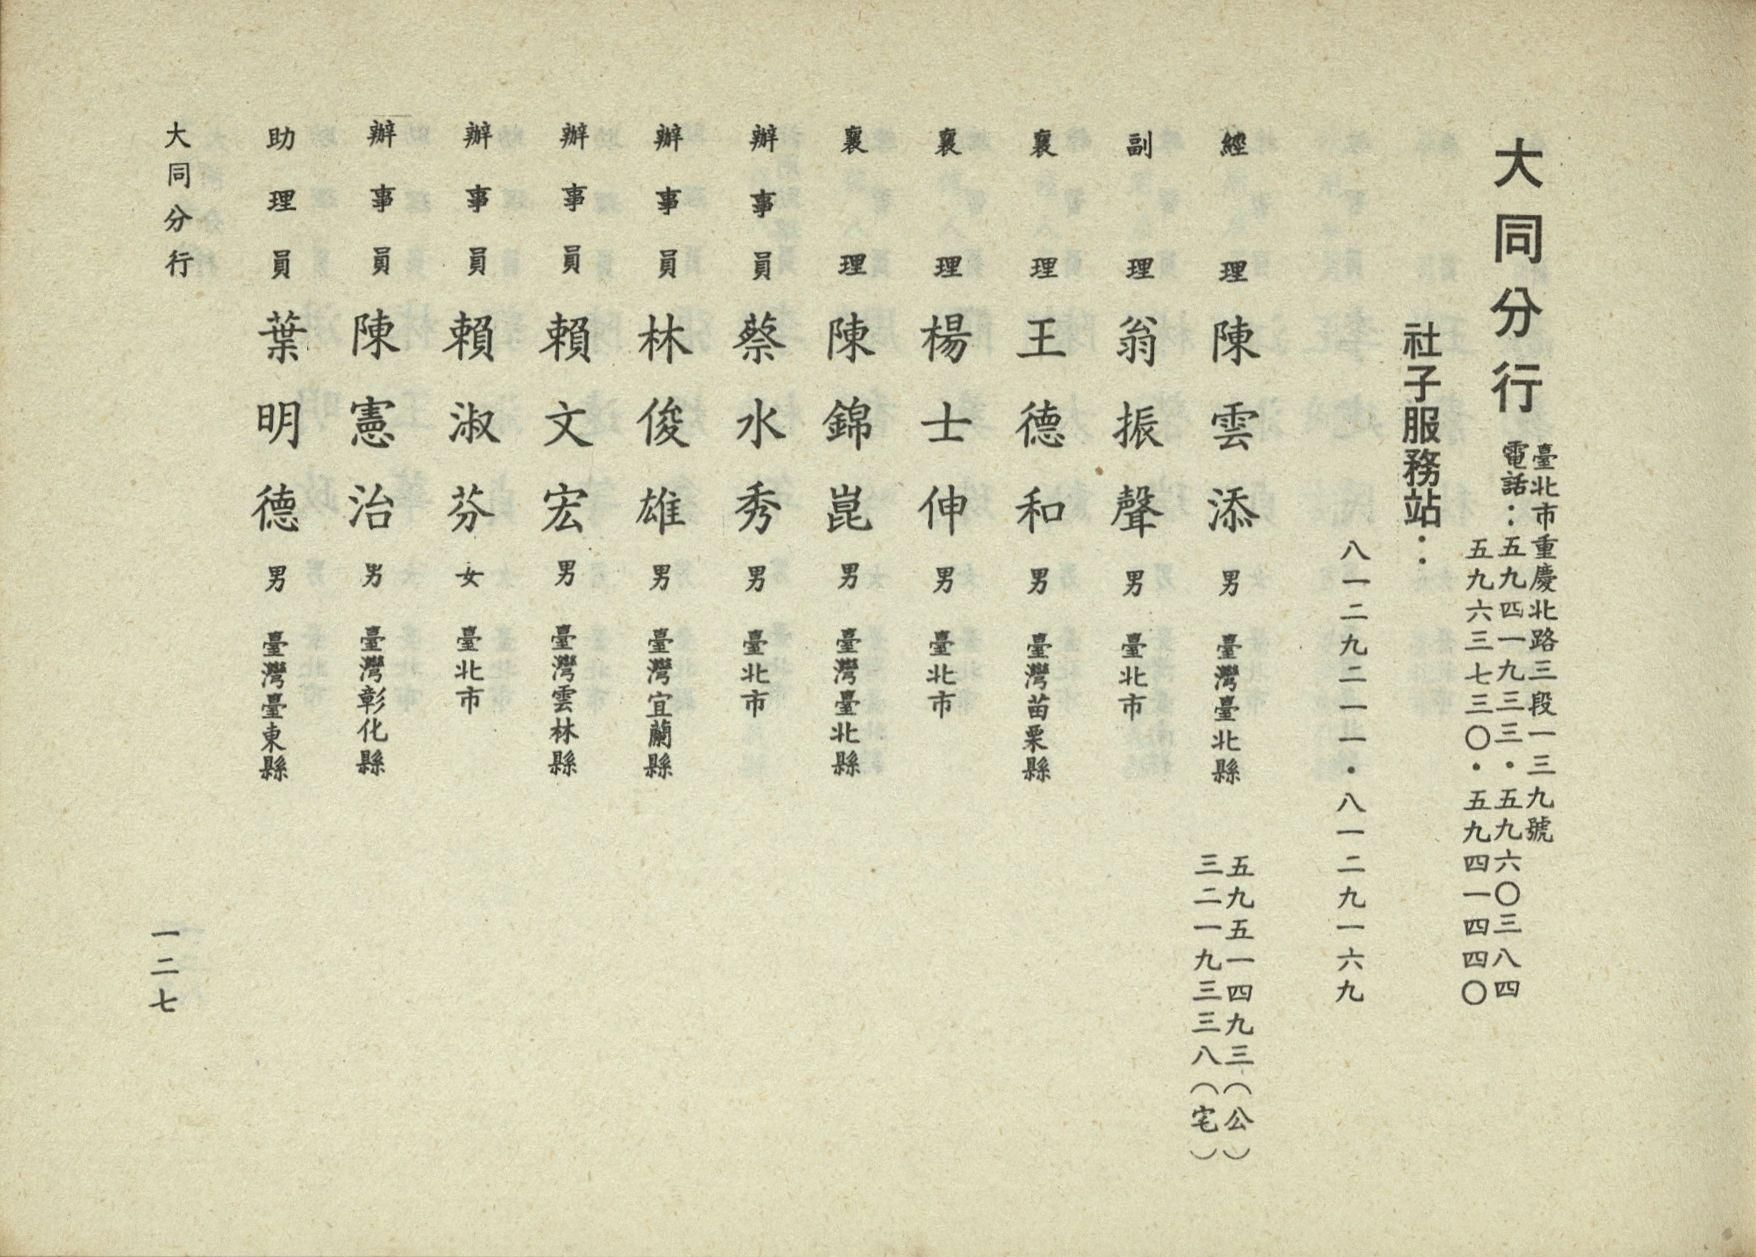 大同分行
臺北市重慶北路三段一三九號
電話：五九四一九三三・五九六〇三八四
五九六三七三〇・五九四一四四〇
社子服務站：
八一二九二一一・八一二九一六九
經理 陳雲添 男 臺灣臺北縣 五九五一四九三（公）
三二一九三三八（宅）
副理 翁振聲 男 臺北市
襄理 王德和 男 臺灣苗栗縣
襄理 楊士伸 男 臺北市
襄理 陳錦崑 男 臺灣臺北縣
辦事員 蔡水秀 男 臺北市
辦事員 林俊雄 男 臺灣宜蘭縣
辦事員 賴文宏 男 臺灣雲林縣
辦事員 賴淑芬 女 臺北市
辦事員 陳憲治 男 臺灣彰化縣
助理員 葉明德 男 臺灣臺東縣
大同分行
一二七